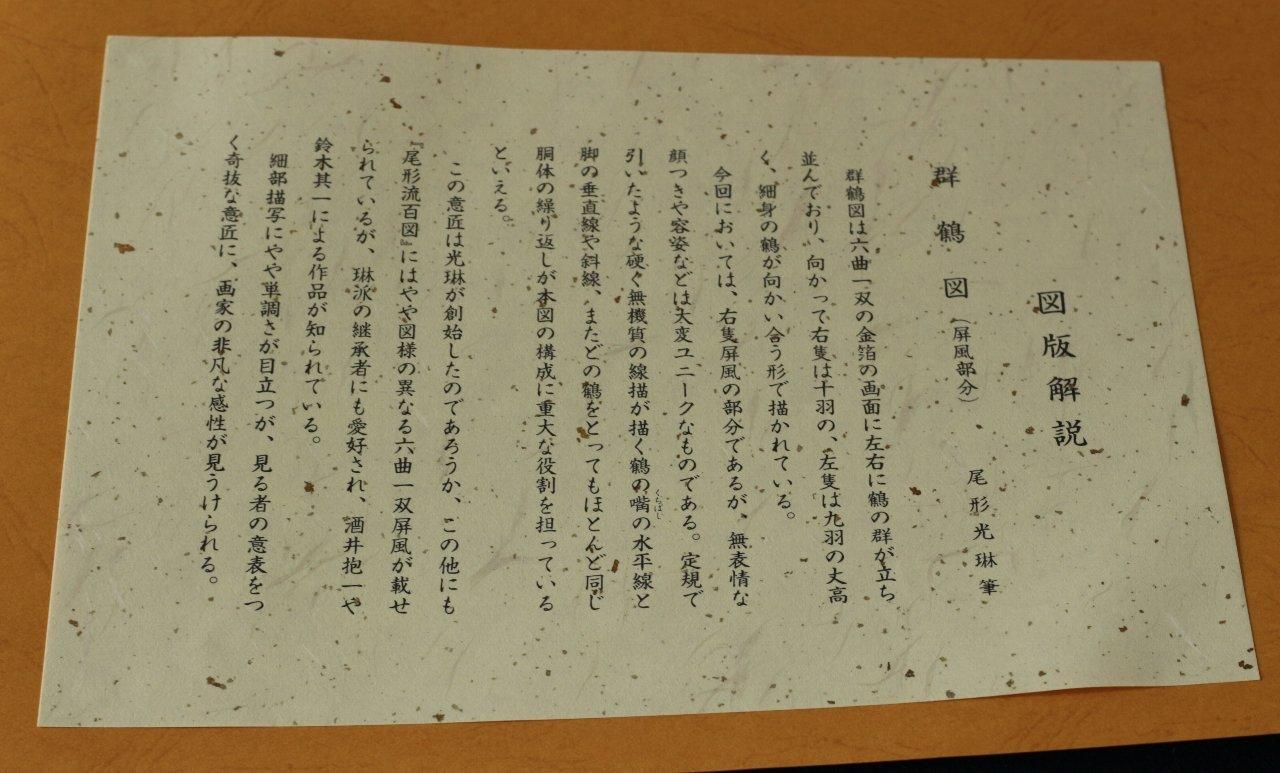 図版解説
群鶴図（屏風部分）
尾形光琳筆
群鶴図は六曲一双の金箔の画面に左右に鶴の群が立ち
並んでおり、向かって右隻は十羽の、左隻は九羽の丈高
く、細身の鶴が向かい合う形で描かれている。
今回においては、右隻屏風の部分であるが、無表情な
顔つきや容姿などは大変ユニークなものである。定規で
引いたような硬く無機質の線描が描く鶴の嘴の水平線と
くちばし
脚の垂直線や斜線、またどの鶴をとってもほとんど同じ
胴体の繰り返しが本図の構成に重大な役割を担っている
といえる。
この意匠は光琳が創始したのであろうか、この他にも
『尾形流百図』にはやや図様の異なる六曲一双屏風が載せ
られているが、琳派の継承者にも愛好され、酒井抱一や
鈴木其一による作品が知られている。
細部描写にやや単調さが目立つが、見る者の意表をつ
く奇抜な意匠に、画家の非凡な感性が見うけられる。